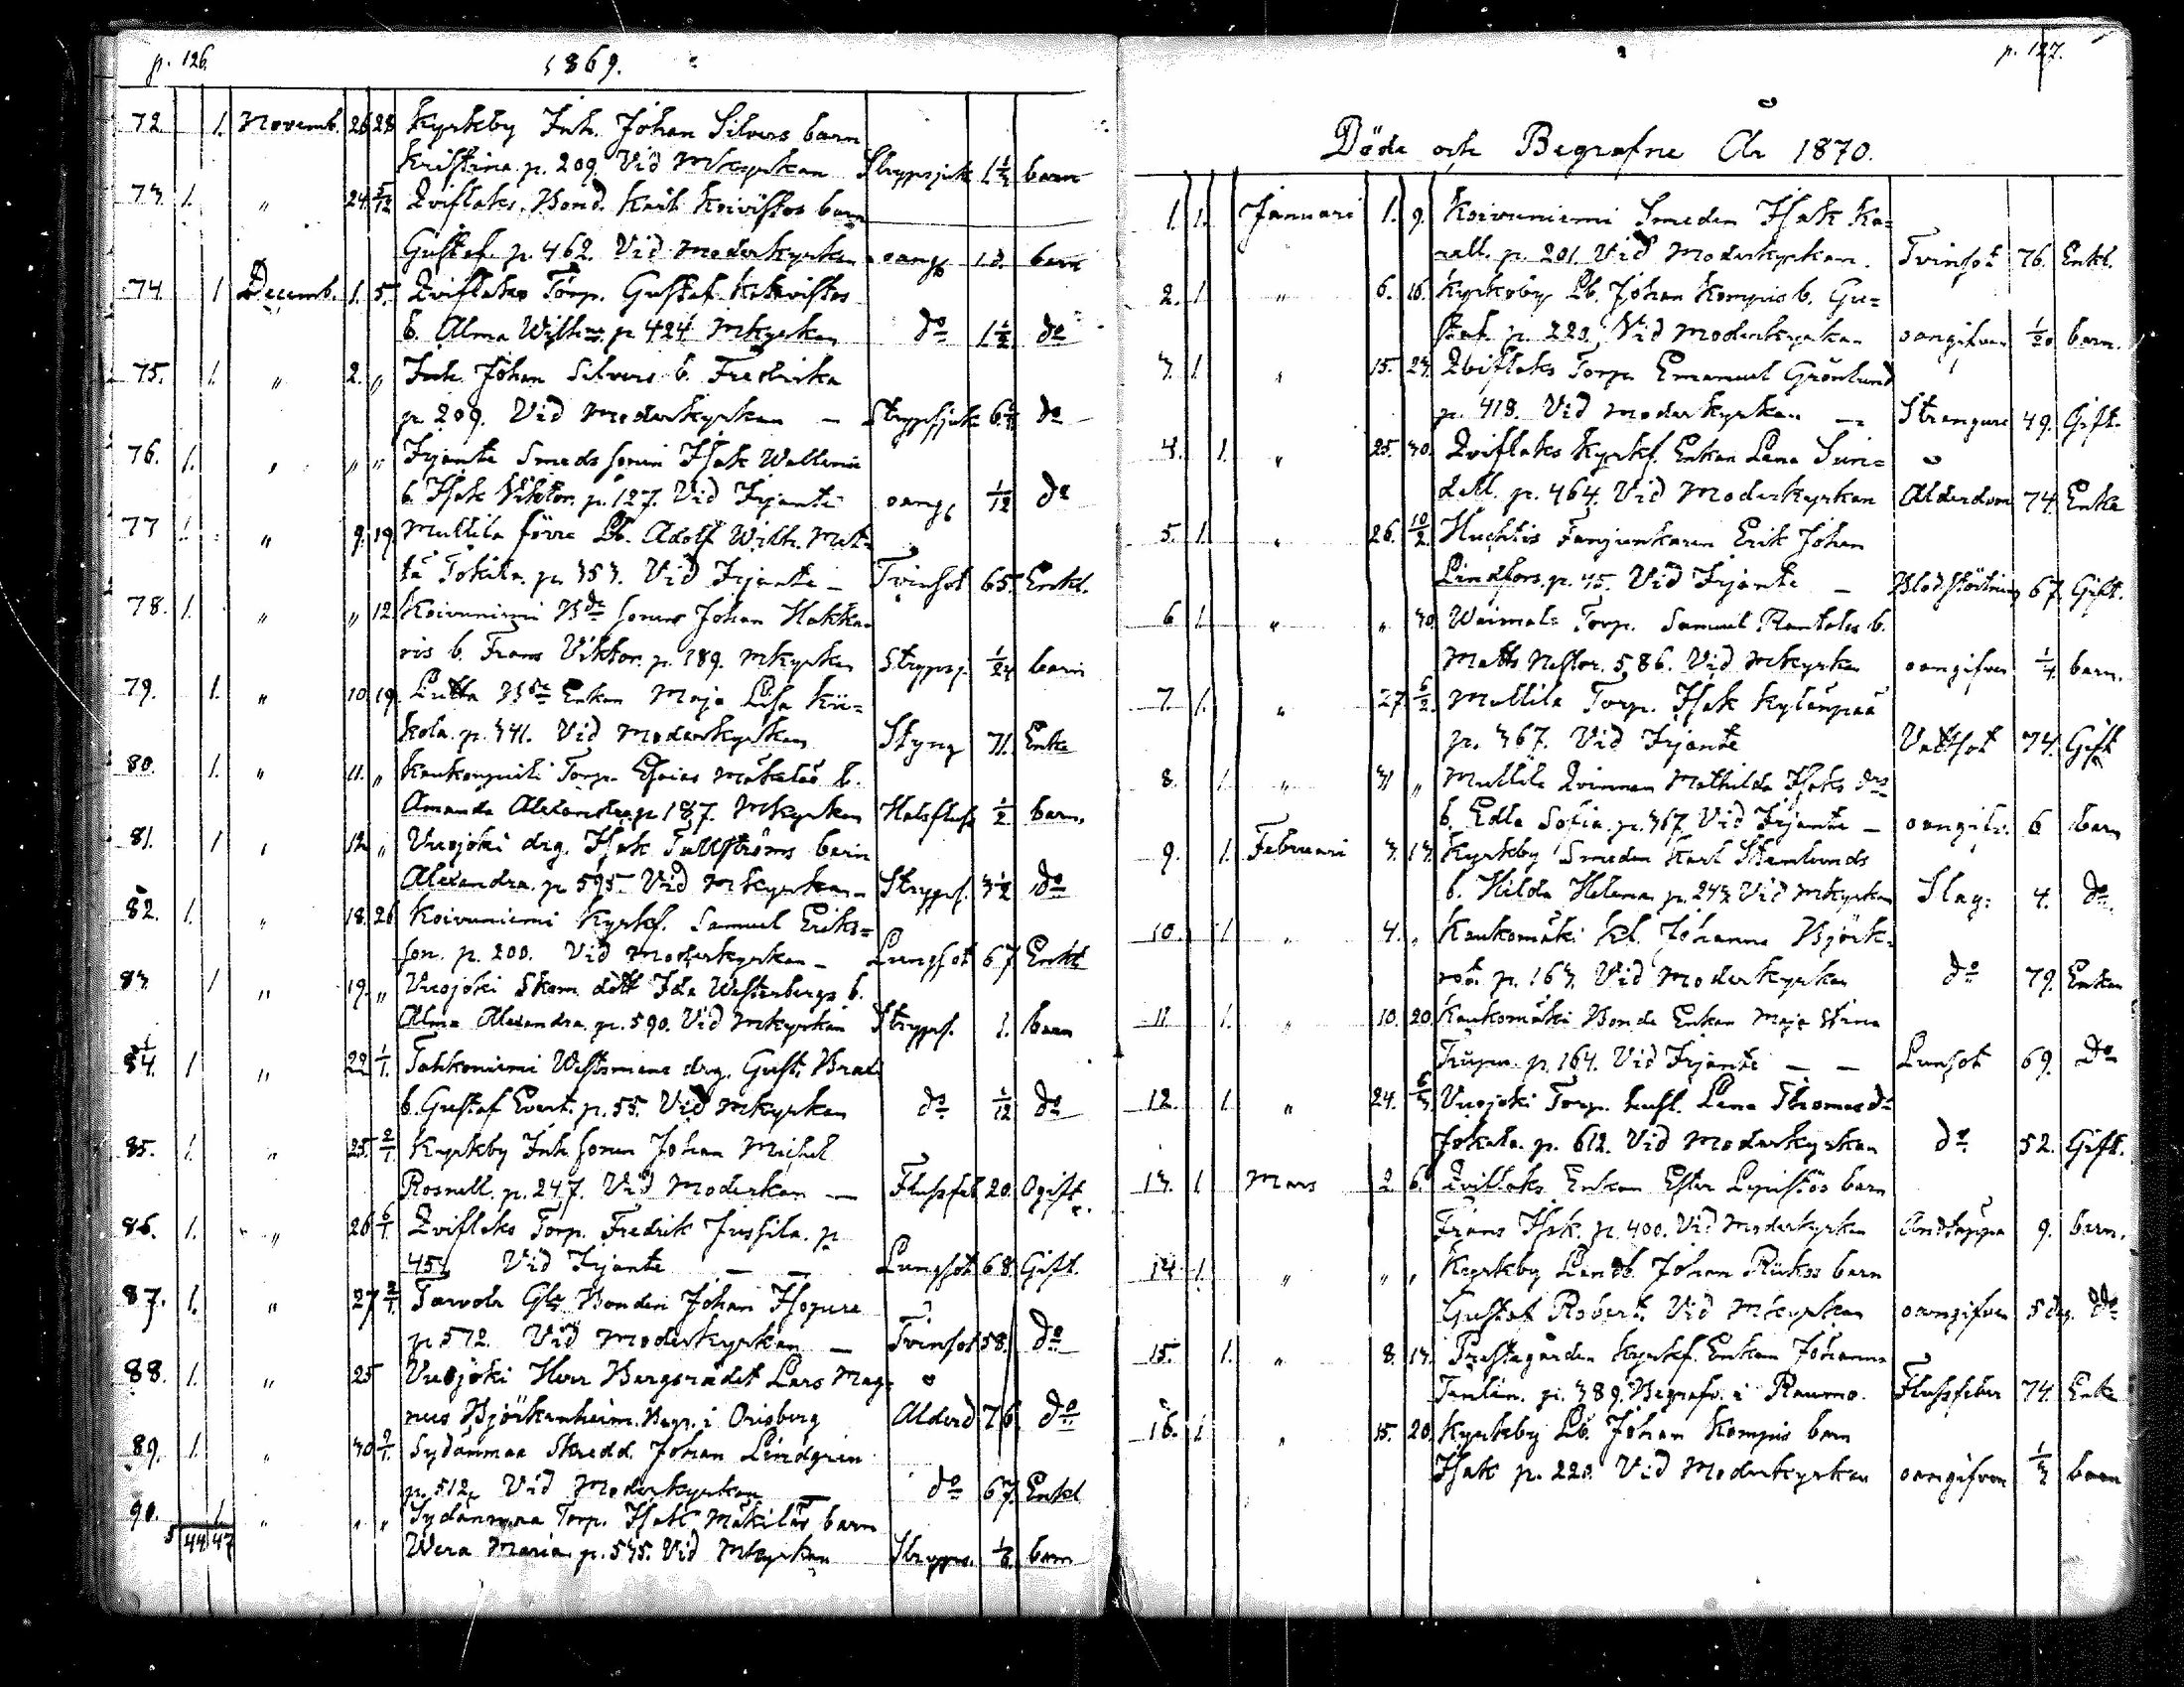 p. 126.
1869.
72 1. Novemb. 26 28 Kyrkby Inh. Johan Silvers barn
Kristina p. 209. Vid Mkyrkan Strypsjuk 1 1/3 barn
73. 1. " 24. 5/12 Qviflaks Bond. Karl Koivistos barn
Gustaf p. 462. Vid Moderkyrkan oang 1 d. barn
74 1 Decemb. 1. 5. Qviflaks Torp. Gustaf
b. Alma Wilhna p. 424 Mkyrkan do 1 1/2 do
75. 1. " 2. " Inh. Johan Silvers b. Fredrika
p. 209. Vid Moderkyrkan — Strypsjuk do
76. 1. " " " Irjante Smeds sonen Isak Wallenii
b. Isak Viktor p. 127. Vid Irjante oang 1/12 do
77 1. " 9. 19 Mullila förre Lb. Adolf Wilh. Mat-
tä Tokila. p. 353. Vid Irjante — Tvinsot 65. Enkl.
78. 1. " " 12. Koivuniemi Bde sonens Johan Hakka-
ris b. Frans Viktor p. 189. Mkyrkan Strypsj. 1/24 barn
79. 1. " 10 19. Lutta Bde Enkan Maja Lisa Kii-
kola. p. 341. Vid Moderkyrkan Styng 71. Enka
80. 1. " 11. " Torp. Esaias Mäkeläs b.
Amanda Alexandra p 187. Mkyrkan Halsfluss 1/2 barn.
81. 1 " 12 " Vuojoki drg. Isak Tallströms barn
Alexandra. p 595. Vid Mkyrkan — Stryps. 3 1/2 do
82. 1. " 18. 26 Koivuniemi Kyrkf. Samuel Eriks=
son. p. 200. Vid Moderkyrkan — Lungsot 67 Enkl
83 1 " 19. " Vuojoki Skom. dott Ida Westerbergs b.
Alma Alexandra. p. 590. Vid Mkyrkan Stryps. 1. barn
84. 1 " 22 1/1. Tahkoniemi Westermans drg. Gust.
b. Gustaf Evert. p. 55. Vid Mkyrkan do 1/12 do
85. 1. " 25. 2/1. Kyrkby Inh. sonen Johan Michel
Rosnell. p. 247. Vid Moderkan — Flussfeb 20. Ogift.
86. 1. " 26 6/1 Qviflaks Torp. Fredrik Jussila. p
Vid Irjante — — Lungsot 68. Gift.
87. 1. " 27 2/1. Tarvola Gle Bonden Johan
p 572. Vid Moderkyrkan — Tvinsot 58. do
88. 1. " 25 Vuojoki Herr Bergsrådet Lars Mag-
nus Björkenheim. Begr. i Orisberg Ålderd 76 do
89. 1. " 30 9/1. Sydänmaa Skredd. Johan Lindgren
p. 512. Vid Moderkyrkan — do 67. Enkl
90. 1. " " " Sydänmaa Torp. Isak Mäkiläs barn
Wera Maria p. 535. Vid Mkyrkan Stryps. 1/6. barn
44 47
p. 127.
Döde och Begrafne År 1870.
1. 1. Januari 1. 9. Koivuniemi Smeden Isak Ka=
rall. p. 201. Vid Moderkyrkan. Tvinsot 76. Enkl.
2. 1. " 6. 16. Kyrkoby Lb. Johan Kompis b. Gu=
staf. p. 220. Vid Moderkyrkan oangifven 1/20 barn.
3. 1. " 15. 23. Qviflaks Torp. Emanuel Grönlund
p. 418. Vid Moderkyrkan — Strangure 49. Gift.
4. 1. " 25. 30. Qviflaks Kyrkf. Enkan Lena Sun=
dell. p. 464. Vid Moderkyrkan Ålderdom 74. Enka
5. 1. " 26. 10/2. Huhtis Fanjunkaren Erik Johan
Lindfors. p. 45. Vid Irjante — Blodstörtning 67. Gift.
6 1. " " 30. Torp. Samuel Rantalas b.
Matts Nestor. 586. Vid Mkyrkan oangifven 1/4. barn.
7. 1. " 27. 6/2. Mullila Torp. Isak Kylänpää
p. 367. Vid Irjante Vattsot 74. Gift
8. 1. " 31 " Mullila Qvinnan Mathilda Isaks drs
b. Edla Sofia. p. 367. Vid Irjante — oangifv. 6 barn
9. 1. Februari 3. 13. Kyrkby Smeden Karl Stenlunds
b. Hilda Helena p. 243 Vid Mkyrkan Slag. 4. do.
10. 1. " 4. " Kaukomäki Kl. Johanna Björk-
p. 163. Vid Moderkyrkan do 79. Enkan
11. 1. " 10. 20. Kaukomäki Bonde Enkan Maja Stina
p. 164. Vid Irjante — — Lunsot 69. do
12. 1. " 24. 6/3. Vuojoki Torp. hust. Lena Thomasdr
Jokala. p. 612. Vid Moderkyrkan do 52. Gift.
13. 1. Mars 2. 6. Qviflaks Enkan Ester Lepistös barn
Frans Isak. p. 400. Vid Moderkyrkan Andtäppa 9. barn.
14. 1. " " " Kyrkby Landb. Johan barn
Gustaf Robert. Vid Mkyrkan oangifven 5 dag. do
15. 1. " 8. 13. Prestegården Kyrkf. Enkan Johanna
Tamlin. p. 389. Begrafv. i Raumo. Flussfeber 74. Enk
16. 1. " 15. 20. Kyrkby Lb. Johan Kompis barn
Isak p. 220. Vid Moderkyrkan oangifven 1/3 barn